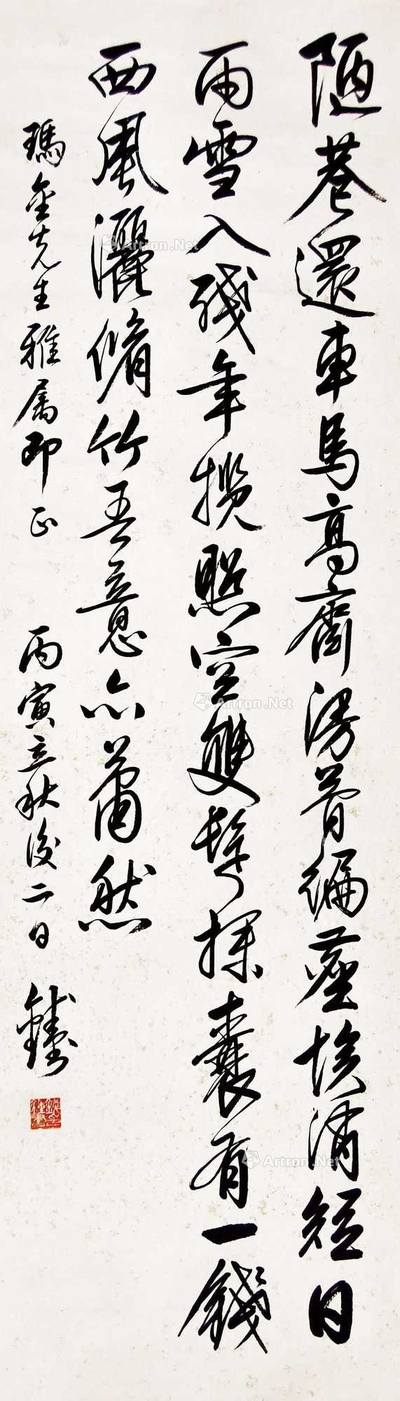 陋巷還車馬高齋濁簡編塵埃消短日
雨雪入殘年攬照空雙鬢探囊有一錢
西風灑脩竹吾意亦蕭然
瑪金先生雅屬即正 丙寅立秋後二日
Artron.Net
Artron.Net
Artron.Net